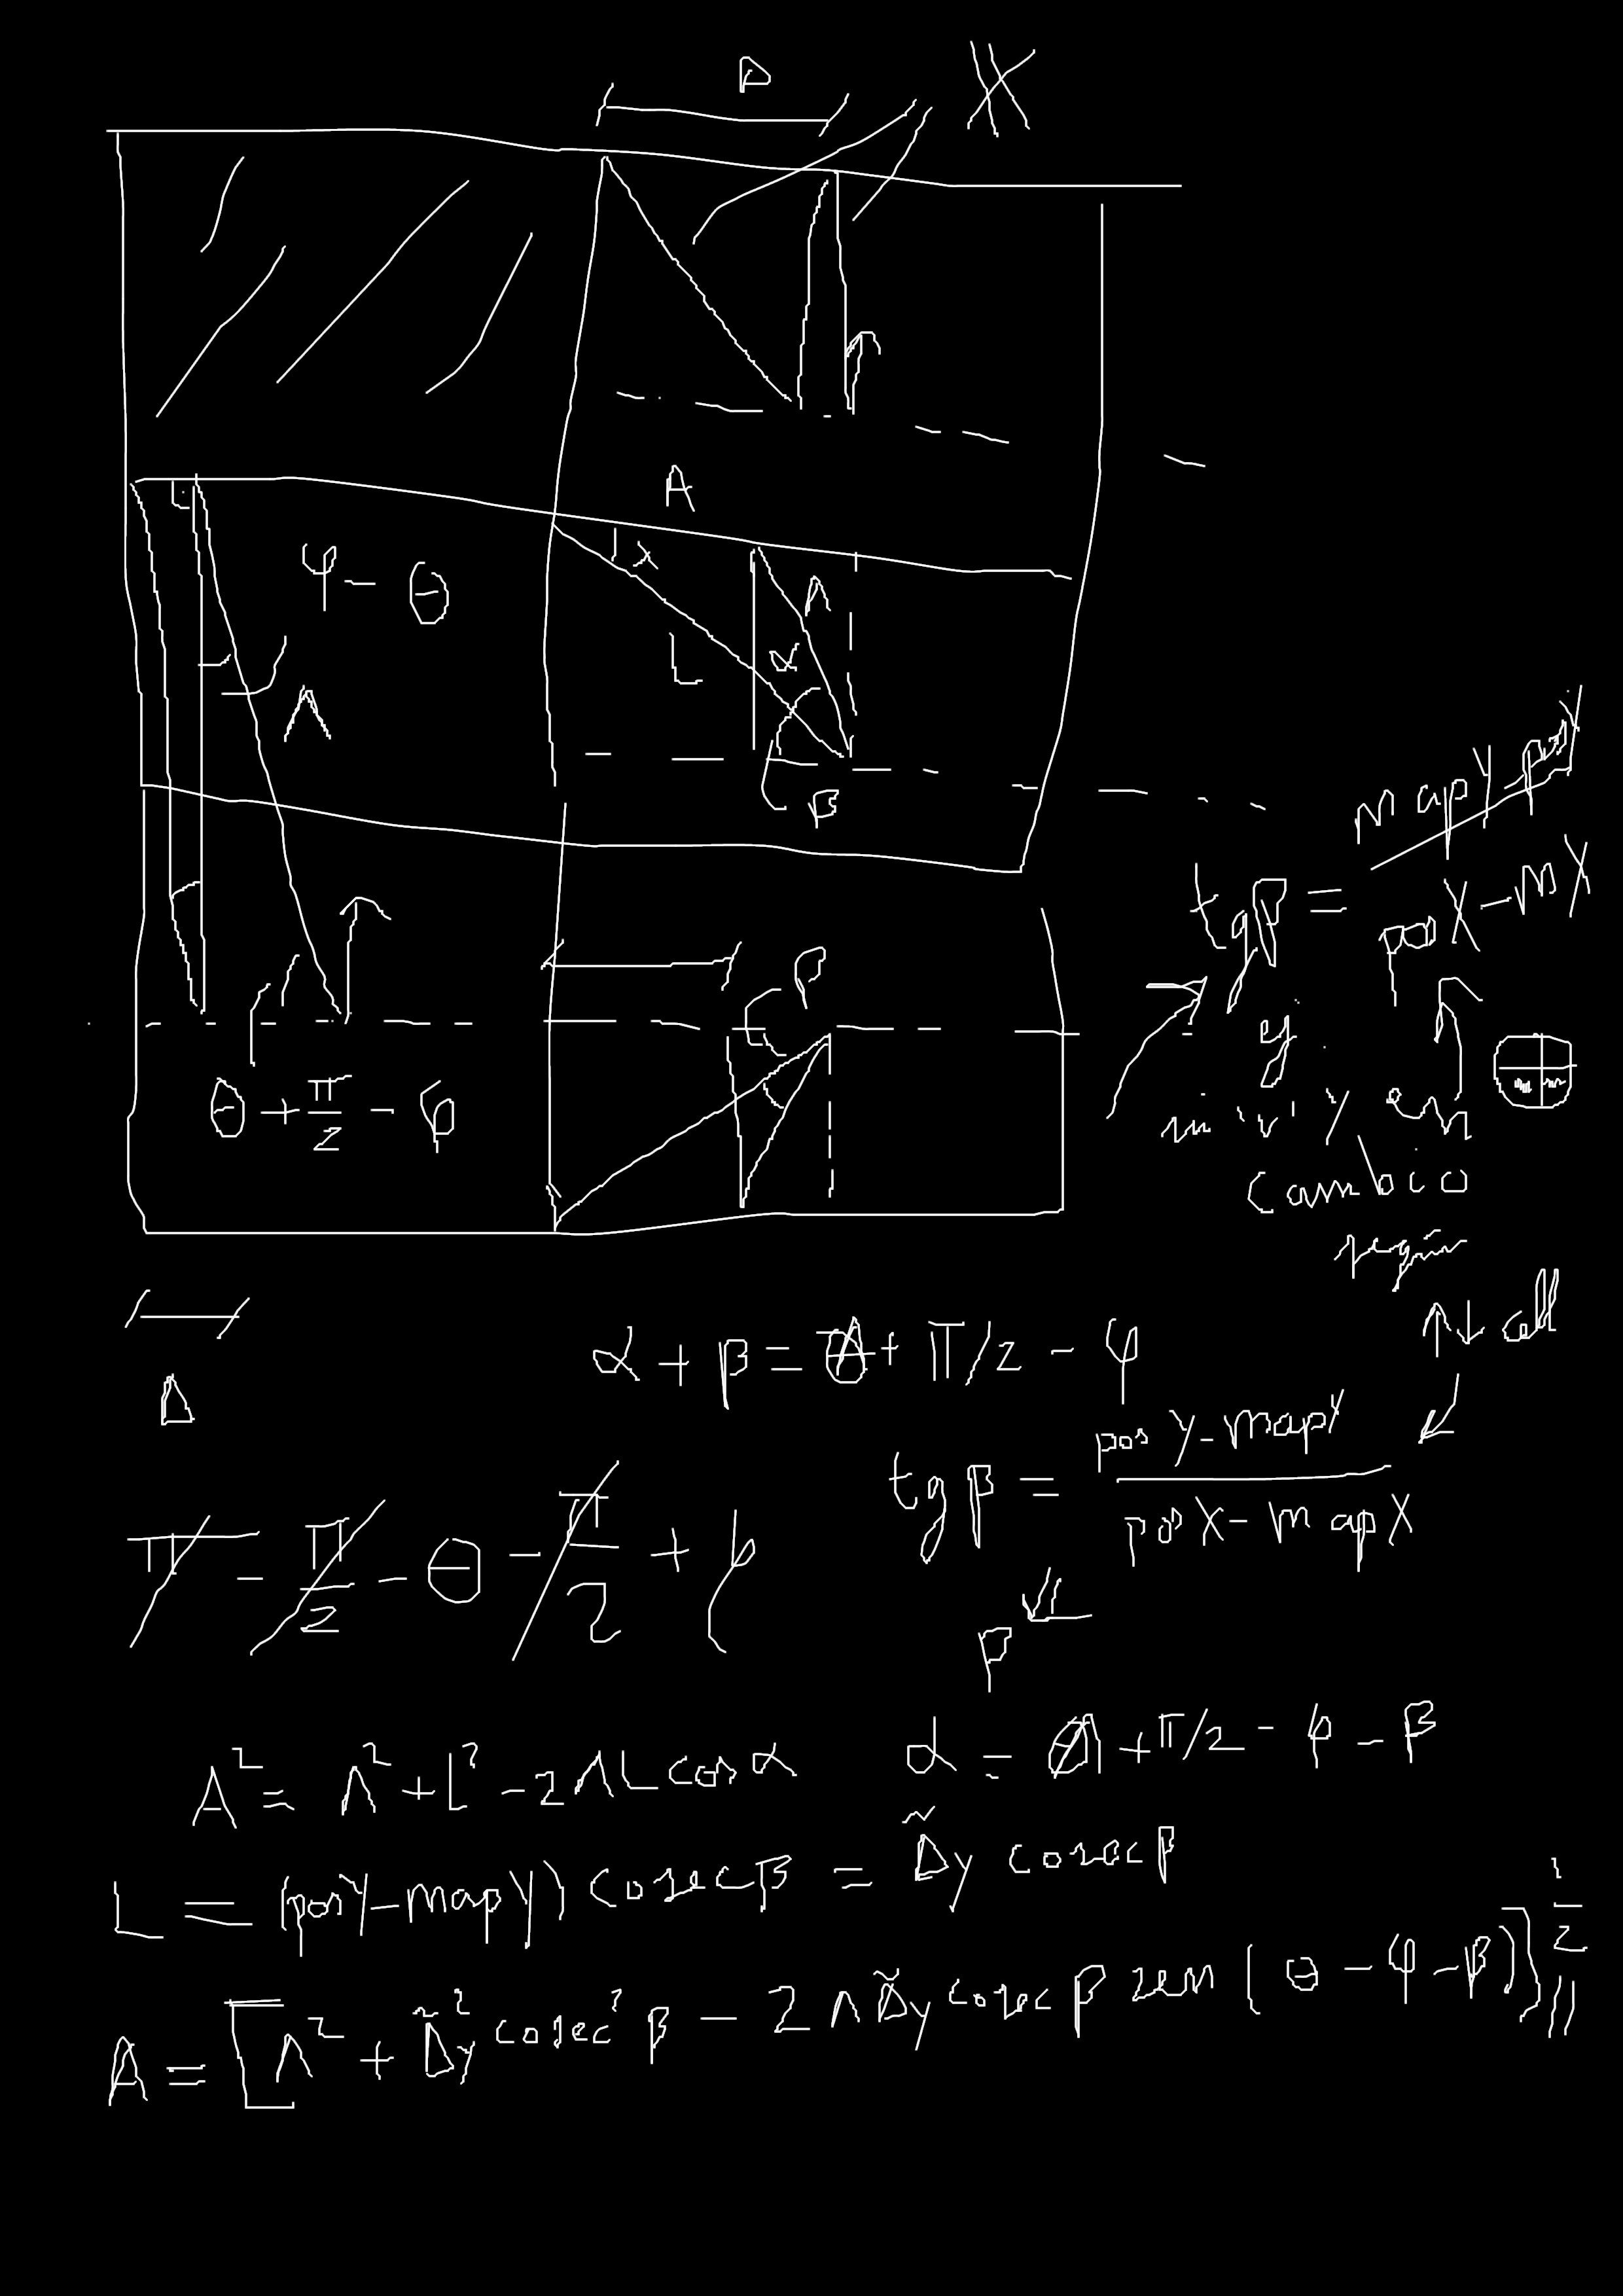 D
A
φ - θ
α
L
Λ
α
Λ
β
tgβ =
posX - mX
β
y
θ + π/2 - φ
cambio
↑↓ all
Δ
α + β = θ + π/2 - φ
tgβ = (posY - mapY) / (posX - mapX)
π - π/2 - θ - π/2 + φ
A² = Λ² + L² - 2ΛL cos α
α = θ + π/2 - φ - β
L = (posY - mapY) cosec β = Δ̃y cosec β
A = [Λ² + Δ̃y² cosec² β - 2ΛΔ̃y cosec β sen(θ - φ - β)]^½ //